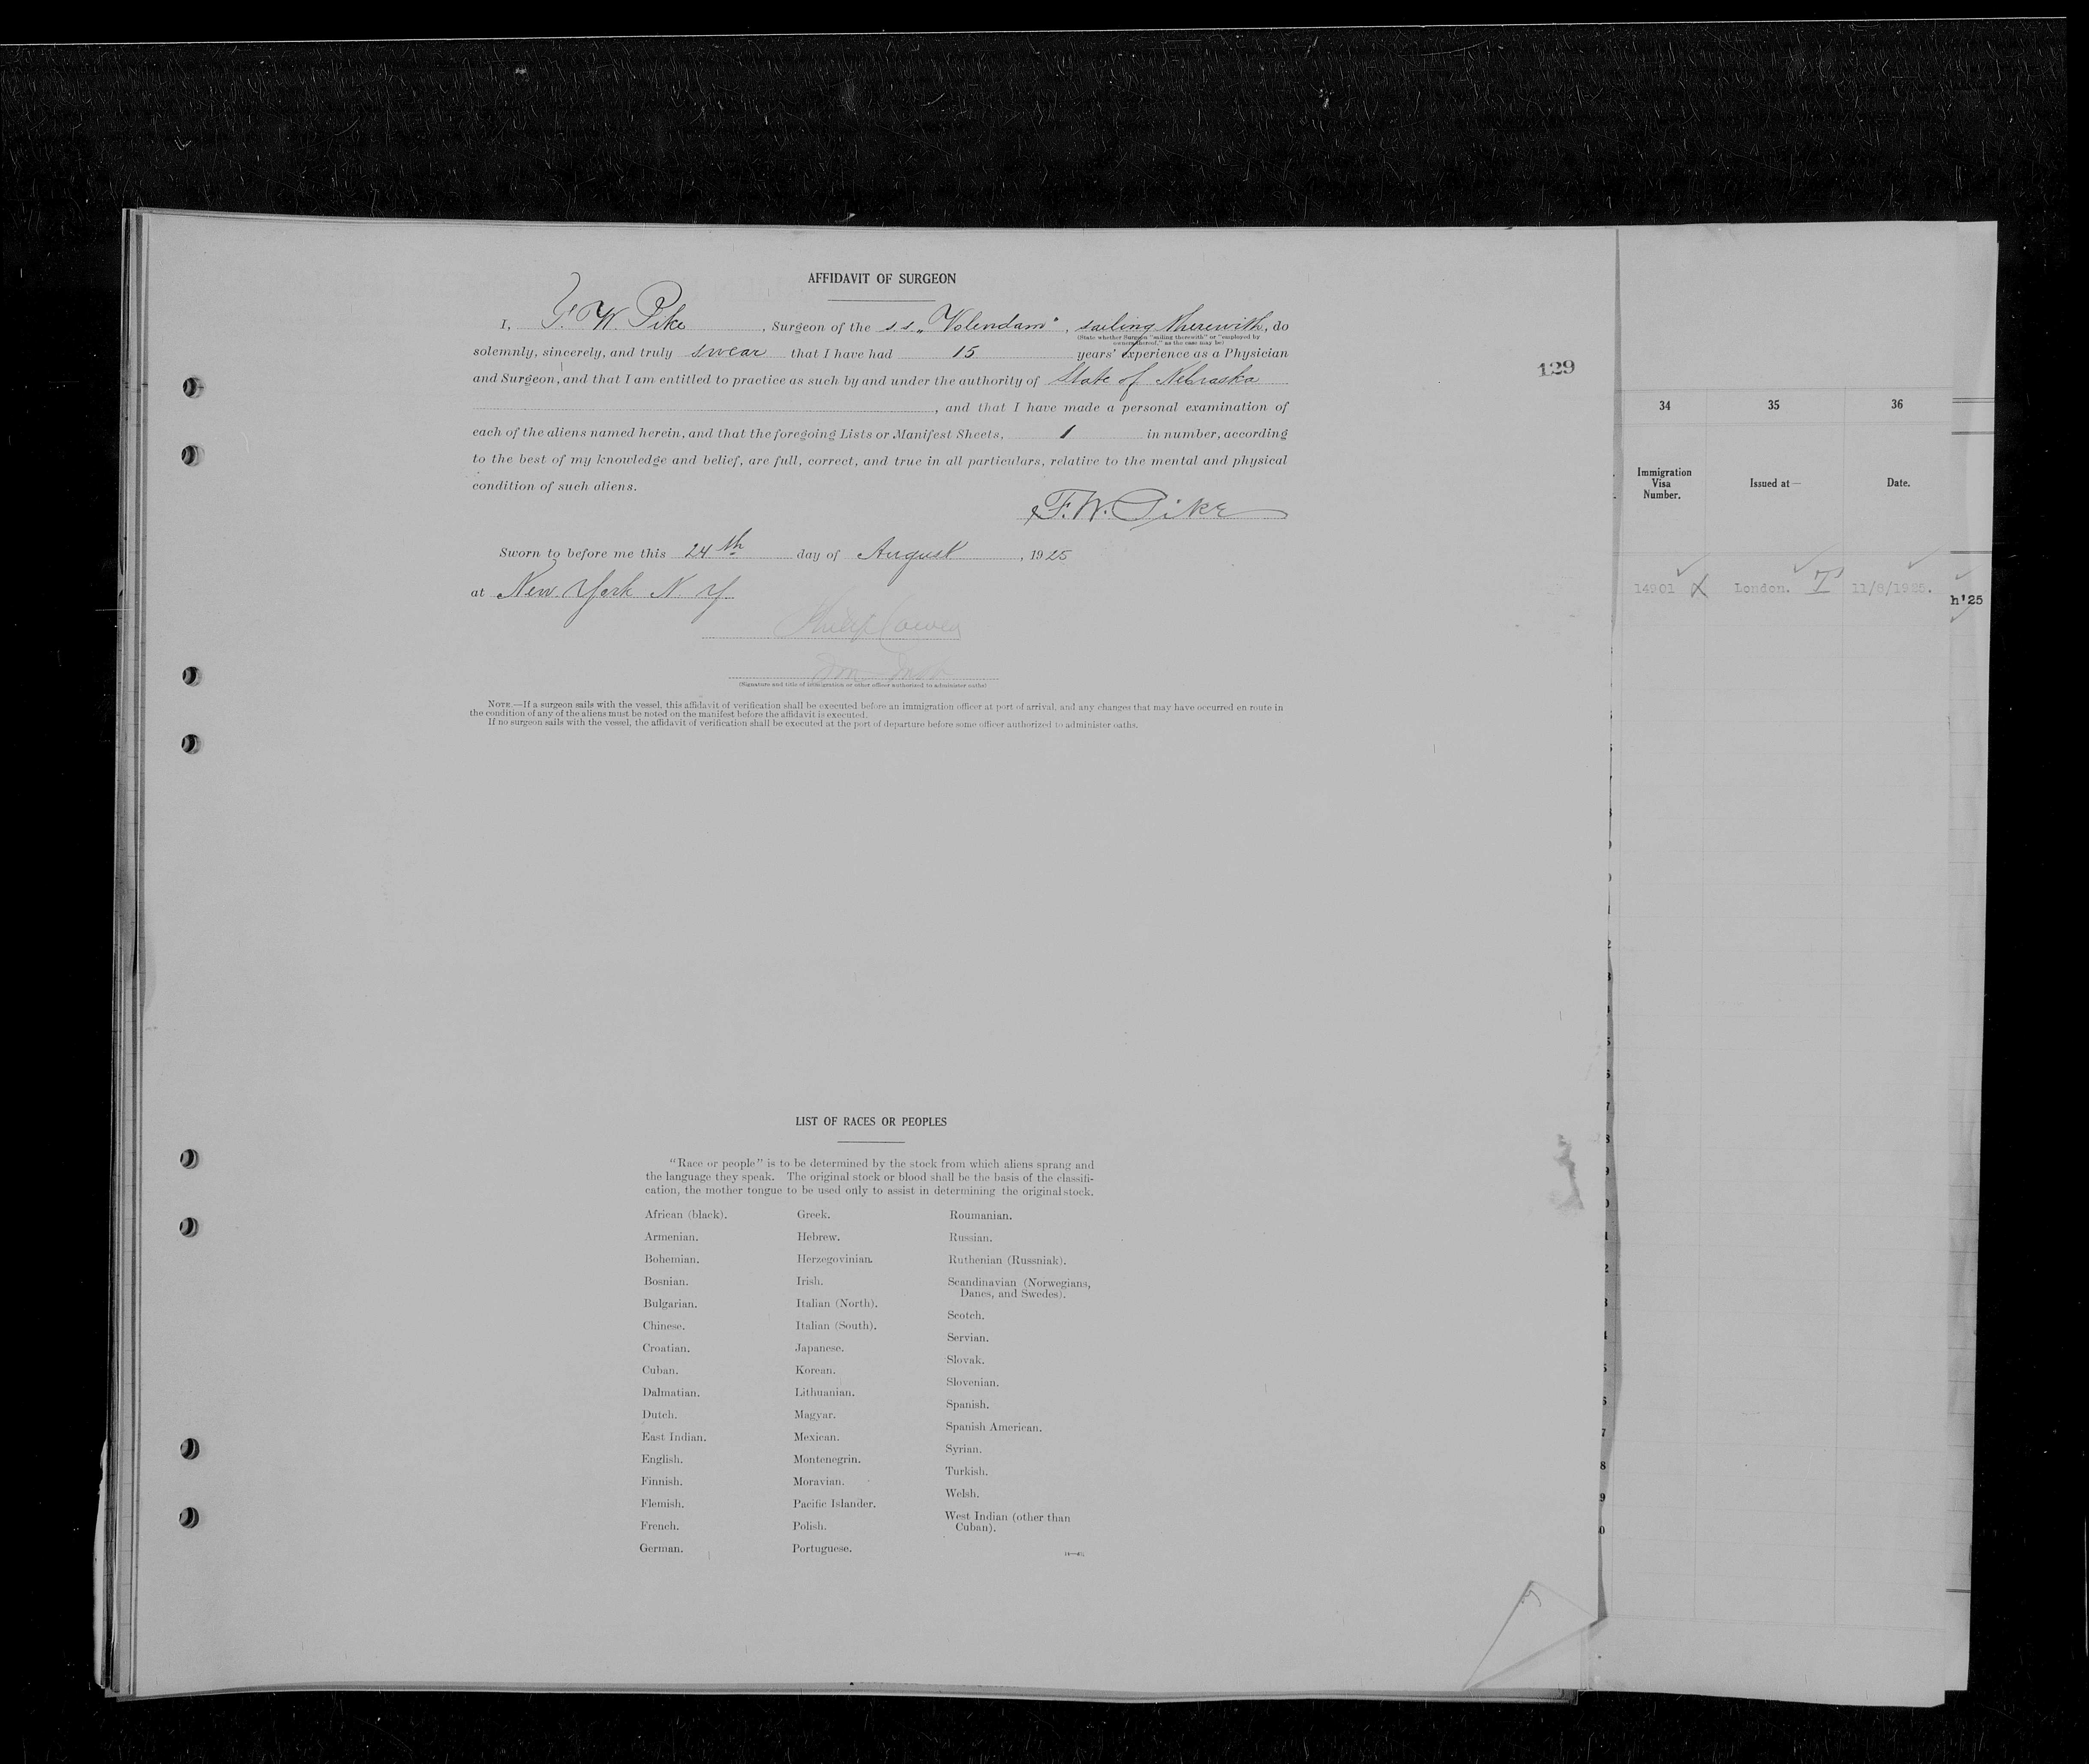 AFFIDAVIT OF SURGEON
I, F. W. Pike, Surgeon of the s.s. „Volendam", sailing therewith, do
(State whether Surgeon "sailing therewith" or "employed by
owners thereof," as the case may be)
solemnly, sincerely, and truly swear that I have had 15 years' experience as a Physician
and Surgeon, and that I am entitled to practice as such by and under the authority of State of Nebraska
, and that I have made a personal examination of
each of the aliens named herein, and that the foregoing Lists or Manifest Sheets, 1 in number, according
to the best of my knowledge and belief, are full, correct, and true in all particulars, relative to the mental and physical
condition of such aliens.
F. W. Pike
Sworn to before me this 24th day of August, 1925
at New York N.Y.
(Signature and title of immigration or other officer authorized to administer oaths)
NOTE.—If a surgeon sails with the vessel, this affidavit of verification shall be executed before an immigration officer at port of arrival, and any changes that may have occurred en route in
the condition of any of the aliens must be noted on the manifest before the affidavit is executed.
If no surgeon sails with the vessel, the affidavit of verification shall be executed at the port of departure before some officer authorized to administer oaths.
129
34 35 36
Immigration
Visa
Number.
Issued at—
Date.
14901 London. 11/8/1925.
h'25
LIST OF RACES OR PEOPLES
"Race or people" is to be determined by the stock from which aliens sprang and
the language they speak. The original stock or blood shall be the basis of the classifi-
cation, the mother tongue to be used only to assist in determining the original stock.
African (black).
Armenian.
Bohemian.
Bosnian.
Bulgarian.
Chinese.
Croatian.
Cuban.
Dalmatian.
Dutch.
East Indian.
English.
Finnish.
Flemish.
French.
German.
Greek.
Hebrew.
Herzegovinian.
Irish.
Italian (North).
Italian (South).
Japanese.
Korean.
Lithuanian.
Magyar.
Mexican.
Montenegrin.
Moravian.
Pacific Islander.
Polish.
Portuguese.
Roumanian.
Russian.
Ruthenian (Russniak).
Scandinavian (Norwegians,
Danes, and Swedes).
Scotch.
Servian.
Slovak.
Slovenian.
Spanish.
Spanish American.
Syrian.
Turkish.
Welsh.
West Indian (other than
Cuban).